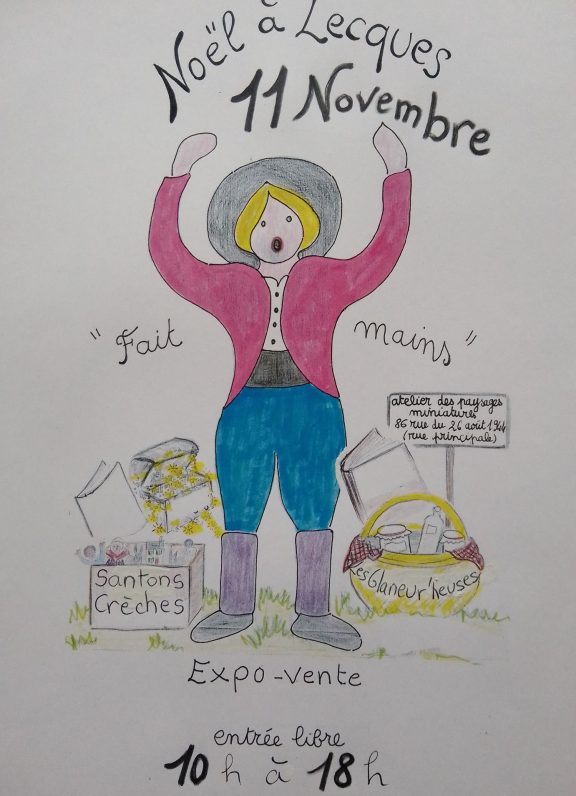 Noël à Lecques
11 Novembre
"Fait mains"
atelier des paysages
miniatures
86 rue du 26 août 1944
(rue principale)
Santons
Crèches
Les Glaneur'heuses
Expo-vente
entrée libre
10 h à 18 h